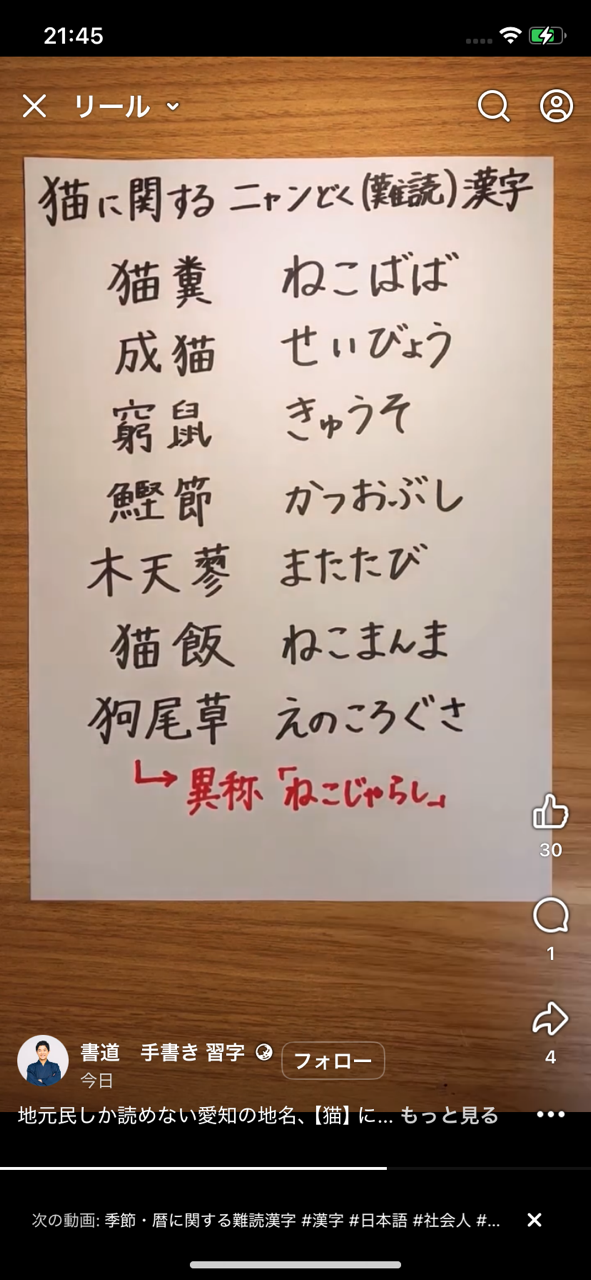 21:45
リール
猫に関する ニャンどく(難読)漢字
猫糞 ねこばば
成猫 せいびょう
窮鼠 きゅうそ
鰹節 かつおぶし
木天蓼 またたび
猫飯 ねこまんま
狗尾草 えのころぐさ
異称「ねこじゃらし」
30
1
4
書道 手書き 習字
フォロー
今日
地元民しか読めない愛知の地名、【猫】に... もっと見る
次の動画: 季節・暦に関する難読漢字 #漢字 #日本語 #社会人 #...